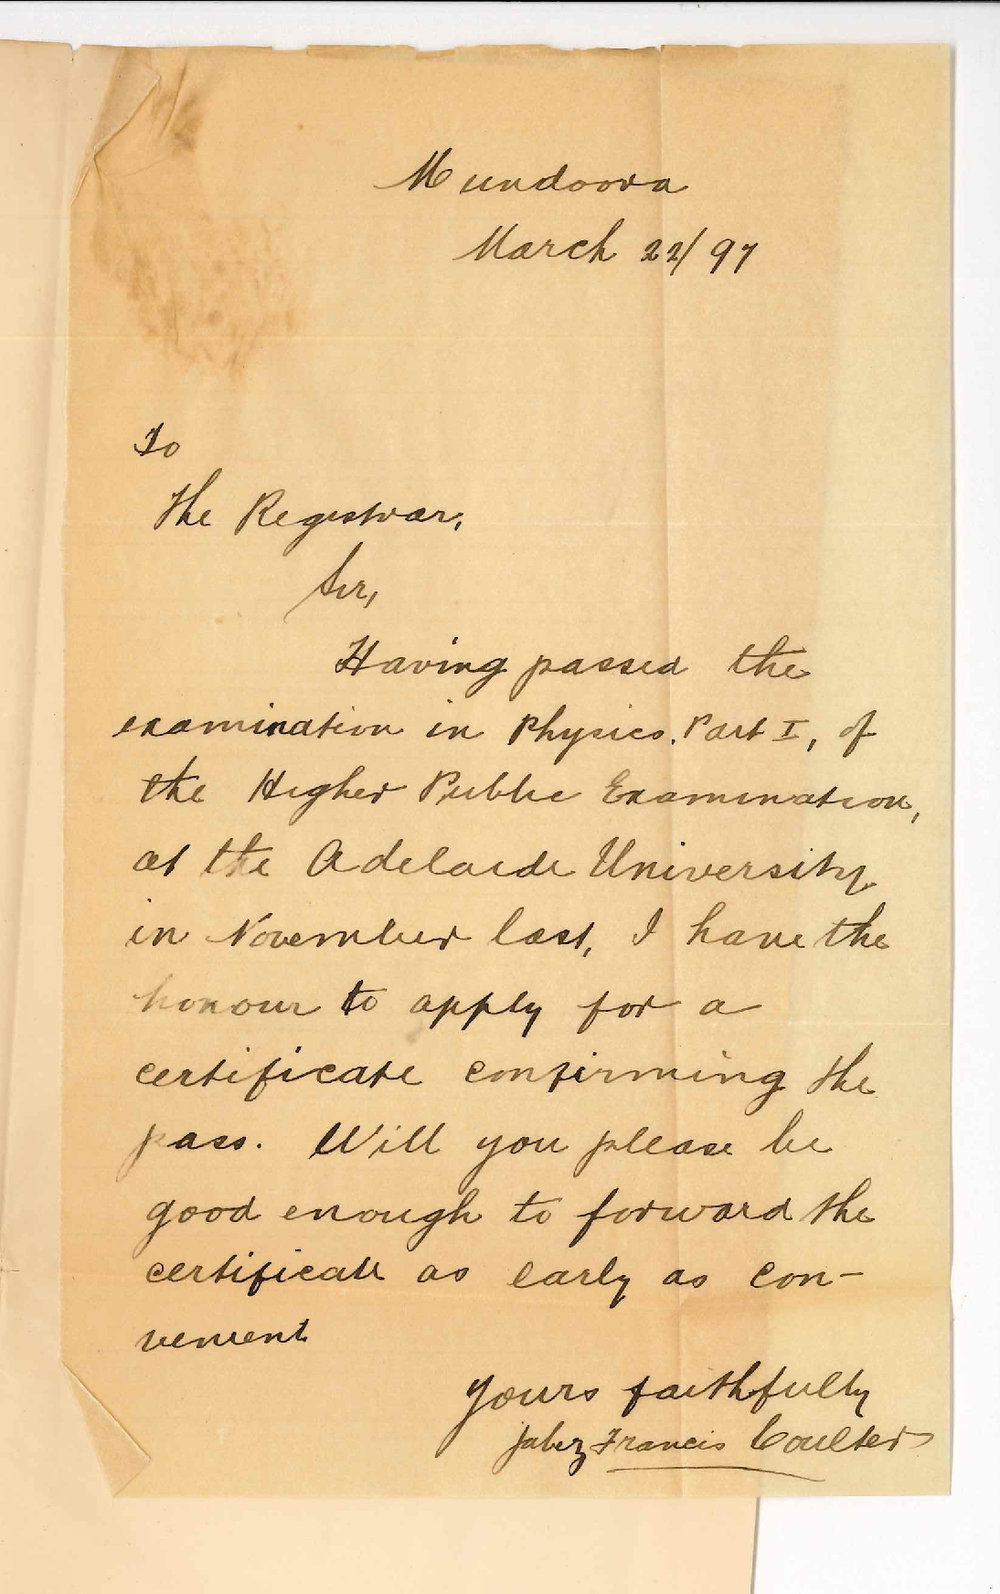 Mundoora
March 22/97
To
The Registrar,
Sir,
Having passed the
examination in Physics. Part I, of
the Higher Public Examination,
at the Adelaide University
in November last, I have the
honour to apply for a
certificate confirming the
pass. Will you please be
good enough to forward the
certificate as early as con-
venient
Yours faithfully
Jabez Francis Coulter